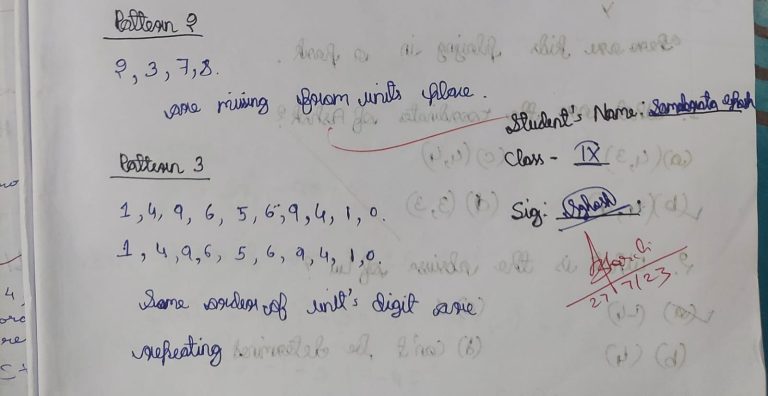 Pattern 2
2, 3, 7, 8.
are missing from units place.
Student's Name: Samabrata Ghosh
Class - IX
Pattern 3
1, 4, 9, 6, 5, 6, 9, 4, 1, 0.
Sig: Ghosh
1, 4, 9, 6, 5, 6, 9, 4, 1, 0.
27/7/23
Same order of unit's digit are
repeating